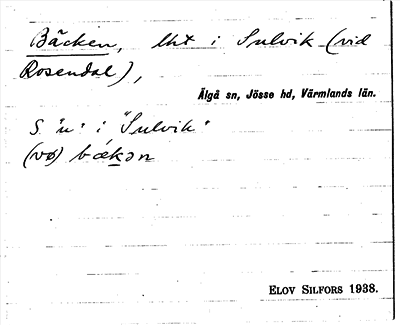 Bäcken, lht i Sulvik (vid
Rosendal),
Älgå sn, Jösse hd, Värmlands län.
S. "u" i "Sulvik"
(vø) bækən
ELOV SILFORS 1938.